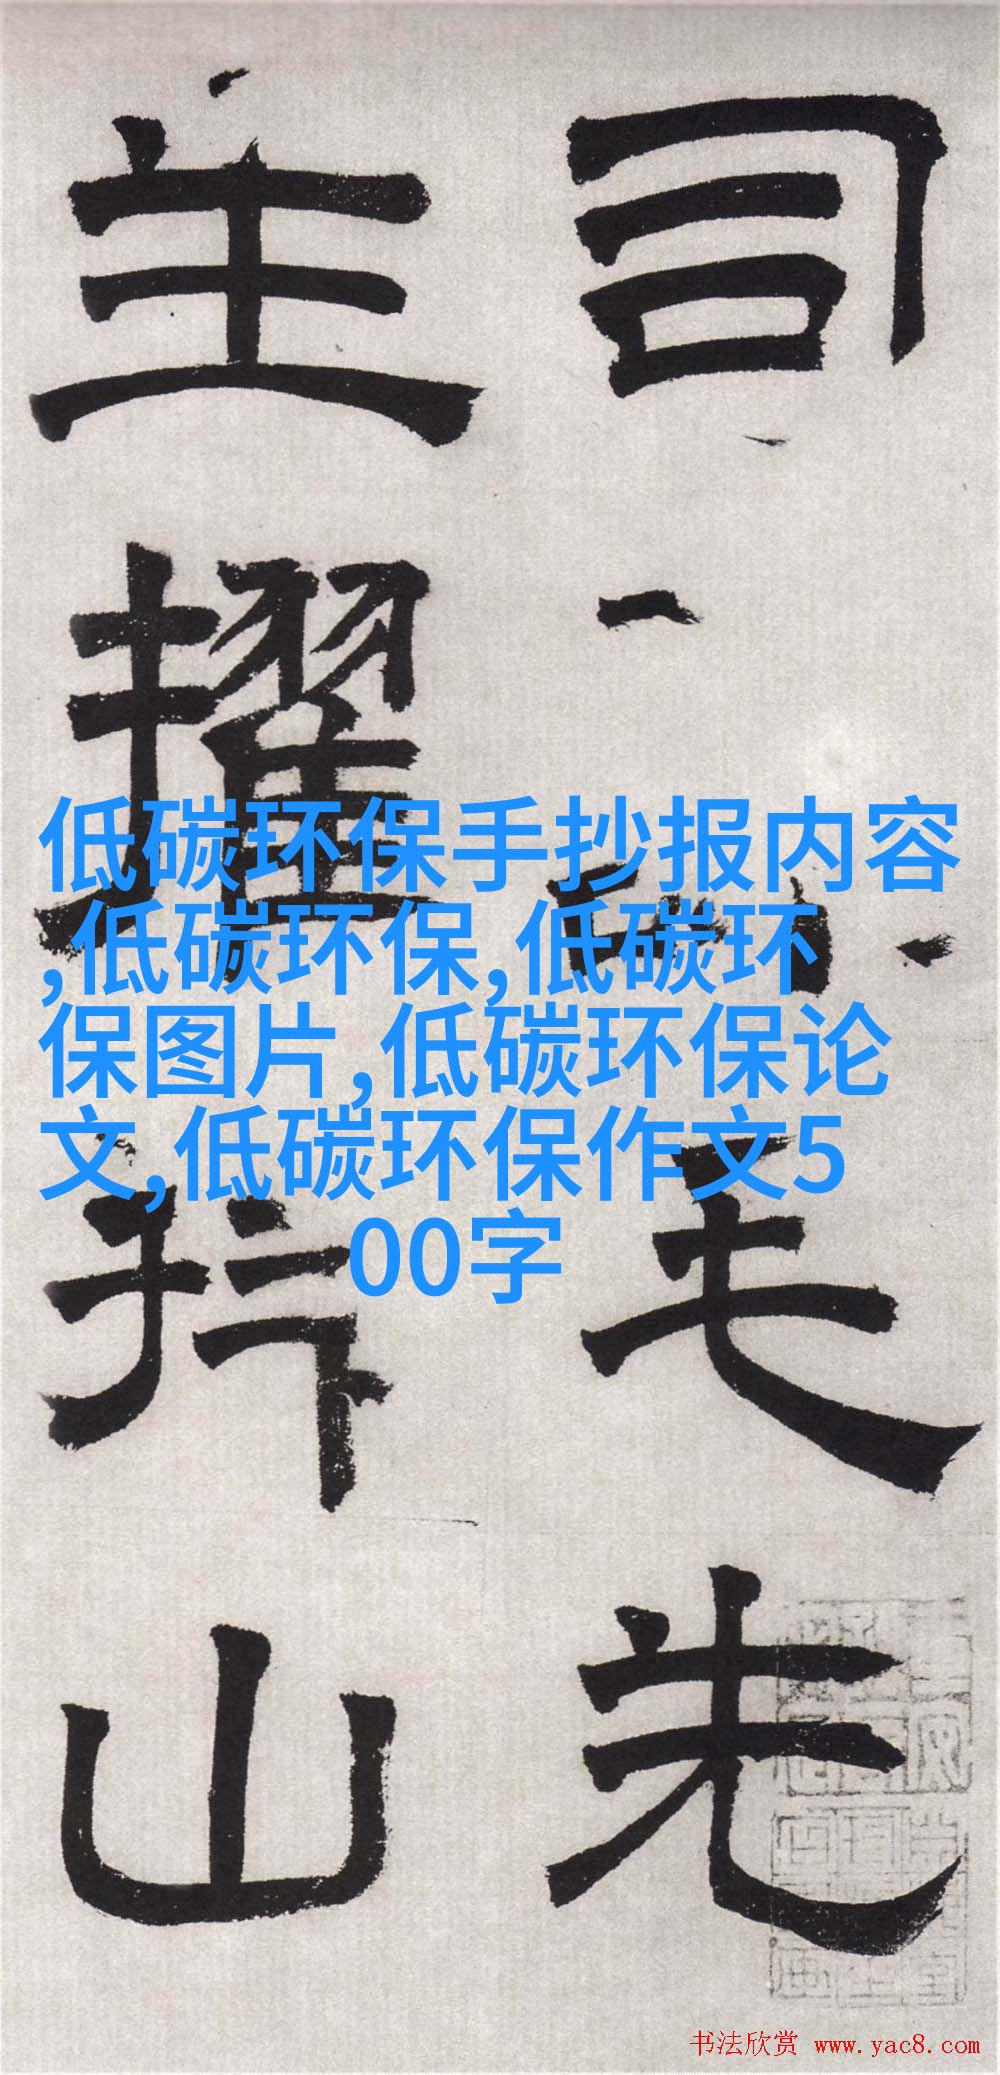 司
毛先
主擢
山
低碳环保手抄报内容
,低碳环保,低碳环
保图片,低碳环保论
文,低碳环保作文5
00字
书法欣赏 www.yac8.com